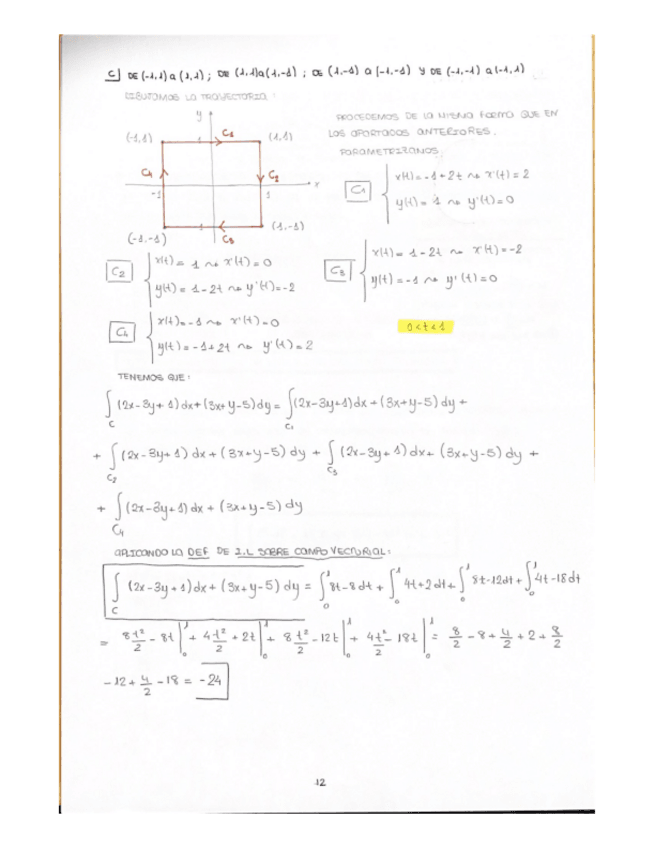 C] DE (-1,1) a (1,1); DE (1,1) a (1,-1); DE (1,-1) a (-1,-1) Y DE (-1,-1) a (-1,1)
DIBUJAMOS LA TRAYECTORIA:
y
(-1,1) 1 C1 (1,1)
C4 C2
-1 1 x
(-1,-1) -1 C3 (1,-1)
PROCEDEMOS DE LA MISMA FORMA QUE EN
LOS APARTADOS ANTERIORES.
PARAMETRIZAMOS.
C1 { x(t) = -1+2t ⇝ x'(t) = 2
y(t) = 1 ⇝ y'(t) = 0
C2 { x(t) = 1 ⇝ x'(t) = 0
y(t) = 1-2t ⇝ y'(t) = -2
C3 { x(t) = 1-2t ⇝ x'(t) = -2
y(t) = -1 ⇝ y'(t) = 0
C4 { x(t) = -1 ⇝ x'(t) = 0
y(t) = -1+2t ⇝ y'(t) = 2
0<t<1
TENEMOS QUE:
∫C (2x-3y+1)dx+(3x+y-5)dy = ∫C1 (2x-3y+1)dx+(3x+y-5)dy +
+ ∫C2 (2x-3y+1)dx+(3x+y-5)dy + ∫C3 (2x-3y+1)dx+(3x+y-5)dy +
+ ∫C4 (2x-3y+1)dx+(3x+y-5)dy
APLICANDO LA DEF DE I.L SOBRE CAMPO VECTORIAL:
∫C (2x-3y+1)dx+(3x+y-5)dy = ∫₀¹ 8t-8dt + ∫₀¹ 4t+2dt + ∫₀¹ 8t-12dt + ∫₀¹ 4t-18dt
= 8t²/2 - 8t |₀¹ + 4t²/2 + 2t |₀¹ + 8t²/2 - 12t |₀¹ + 4t²/2 - 18t |₀¹ = 8/2 - 8 + 4/2 + 2 + 8/2
-12 + 4/2 - 18 = -24
12